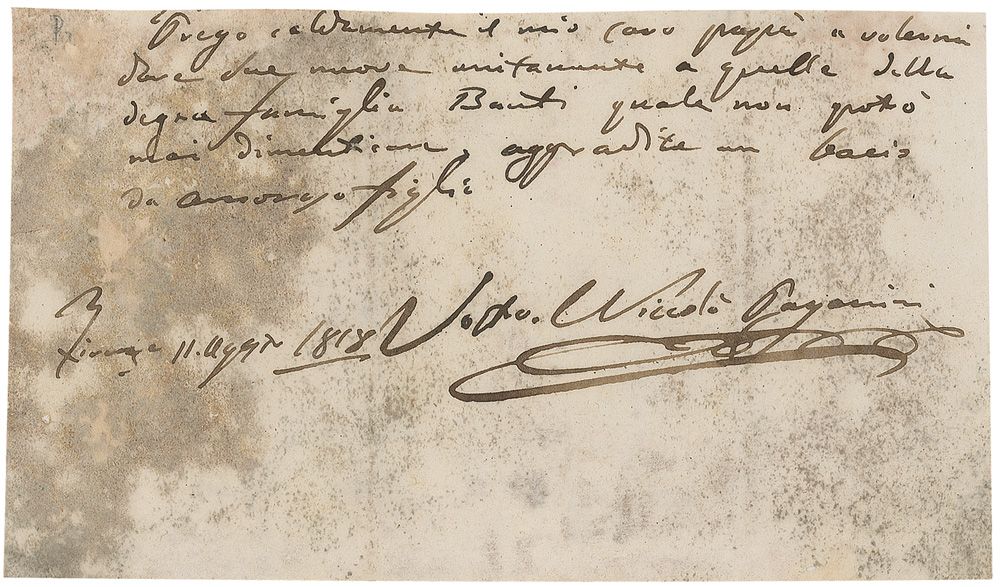 Prego caldamente il mio caro papà a volermi
dare sue nuove unitamente a quelle della
degna famiglia Banti quale non potrò
mai dimenticare, aggradite un bacio
da amoroso figlio
Firenze 11. Agosto 1818 Vostro. Niccolò Paganini